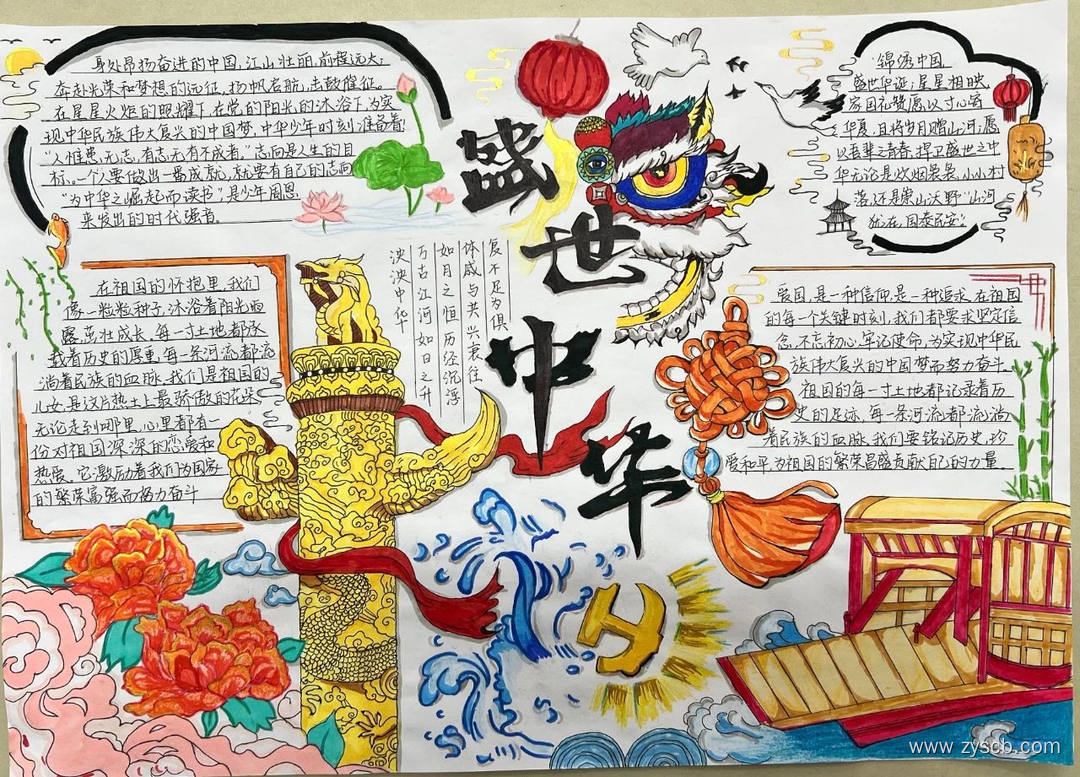 身处昂扬奋进的中国,江山壮丽,前程远大,
奔赴光荣和梦想的远征,扬帆启航,击鼓催征。
在星星火炬的照耀下,在党的阳光的沐浴下,为实
现中华民族伟大复兴的中国梦,中华少年时刻准备着!
"人惟患无志,有志无有不成者。"志向是人生的目
标。一个人要做出一番成就,就要有自己的志向
"为中华之崛起而读书",是少年周恩
来发出的时代强音。
盛世中华
锦绣中国
盛世华诞,星星相映
家国礼赞,愿以寸心寄
华夏,且将岁月赠山河,愿
以吾辈之青春,捍卫盛世之中
华无论是炊烟袅袅,小小村
落,还是崇山沃野"山河
犹在,国泰民安"。
复不足为惧
体戚与共兴衰往
如月之恒历经沉浮
万古江河如日之升
泱泱中华
在祖国的怀抱里,我们
像一粒粒种子,沐浴着阳光雨
露,茁壮成长。每一寸土地都承
载着历史的厚重,每一条河流都流
淌着民族的血脉。我们是祖国的
儿女,是这片热土上最骄傲的花朵
无论走到哪里,心里都有一
份对祖国深深的恋爱和
热爱。它激励着我们为国家
的繁荣富强而努力奋斗
爱国,是一种信仰,是一种追求,在祖国
的每一个关键时刻,我们都要求坚定信
念,不忘初心,牢记使命,为实现中华民
族伟大复兴的中国梦而努力奋斗。
祖国的每一寸土地都记录着历
史的足迹,每一条河流都流淌
着民族的血脉,我们要铭记历史,珍
爱和平,为祖国的繁荣昌盛贡献自己的力量
www.zyscb.com